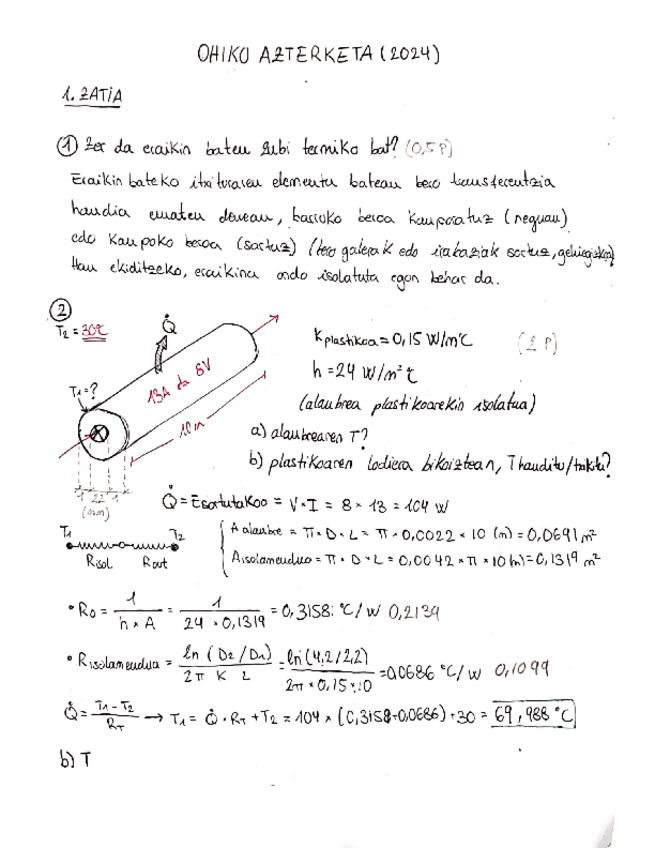 OHIKO AZTERKETA (2024)
1. ZATIA
① Zer da eraikin baten zubi termiko bat? (0,5 P)
Eraikin bateko itxituraren elementu batean bero transferentzia
handia ematen denean, barruko beroa kanporatuz (neguan)
edo kanpoko beroa (sartuz) (bero galerak edo irabaziak sortuz, gehiegizkoak)
Hau ekiditzeko, eraikina ondo isolatuta egon behar da.
②
T2 = 30°C
Q̇
T1=?
13A da 8V
10m
1 2,2 1
(mm)
Kplastikoa = 0,15 W/m°C (2 P)
h = 24 W/m²°C
(alanbrea plastikoarekin isolatua)
a) alanbrearen T?
b) plastikoaren lodiera bikoiztean, T handitu/txikitu?
Q̇ = Esortutakoo = V·I = 8 × 13 = 104 W
T1 T2
Risol Rout
A alanbre = π·D·L = π·0,0022 × 10 (m) = 0,0691 m²
Aisolamendua = π·D·L = 0,0042 × π × 10 (m) = 0,1319 m²
• Ro = 1 / h × A = 1 / 24·0,1319 = 0,3158 °C/W 0,2139
• Risolamendua = ln (D2/D1) / 2π K L = ln (4,2/2,2) / 2π × 0,15 × 10 = 0,0686 °C/W 0,1099
Q̇ = T1 - T2 / RT → T1 = Q̇ · RT + T2 = 104 × (0,3158+0,0686) + 30 = 69,988 °C
b) T